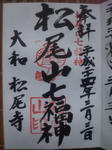 奉拝 平成二十四年三月三日
松尾山七福神
大和 松尾寺